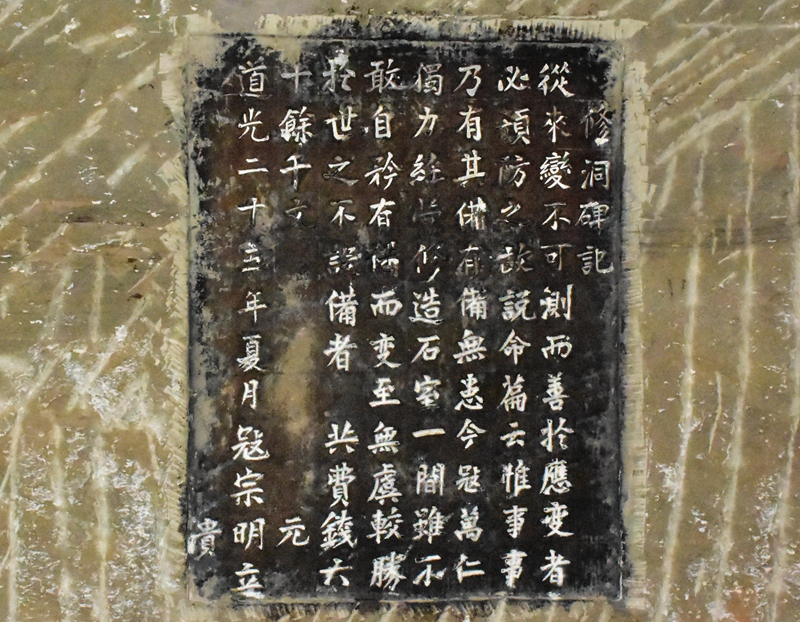 修洞碑記
從來變不可測而善扵應变者
必須防之故説命篇云惟事事
乃有其備有備無患今冦萬仁
獨力經營修造石室一間雖不
敢自矜有備而变至無虞較勝
扵世之不設備者 共費錢六
十餘千文 元
道光二十五年夏月 冦宗明立
貴